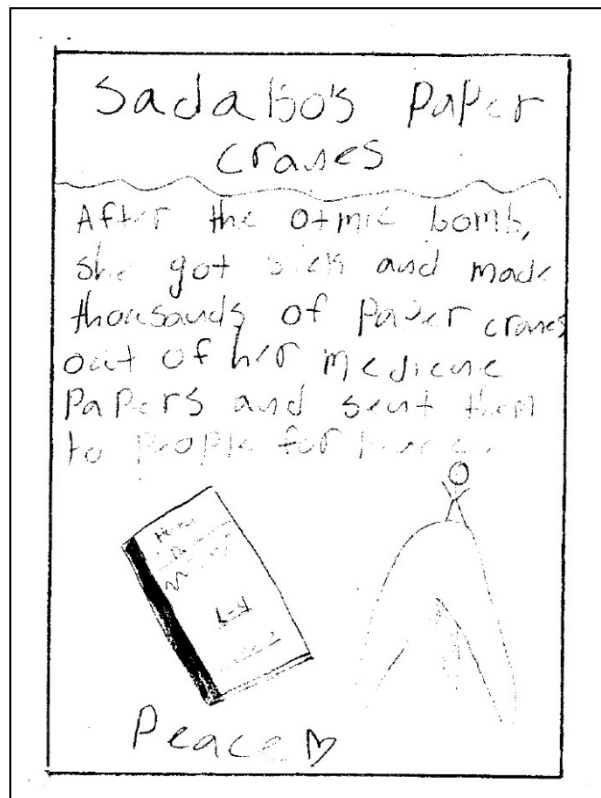 Sadako's Paper
cranes
After the otmic bomb,
she got sick and made
thousands of Paper cranes
out of her medicine
Papers and sent them
to people for
Peace